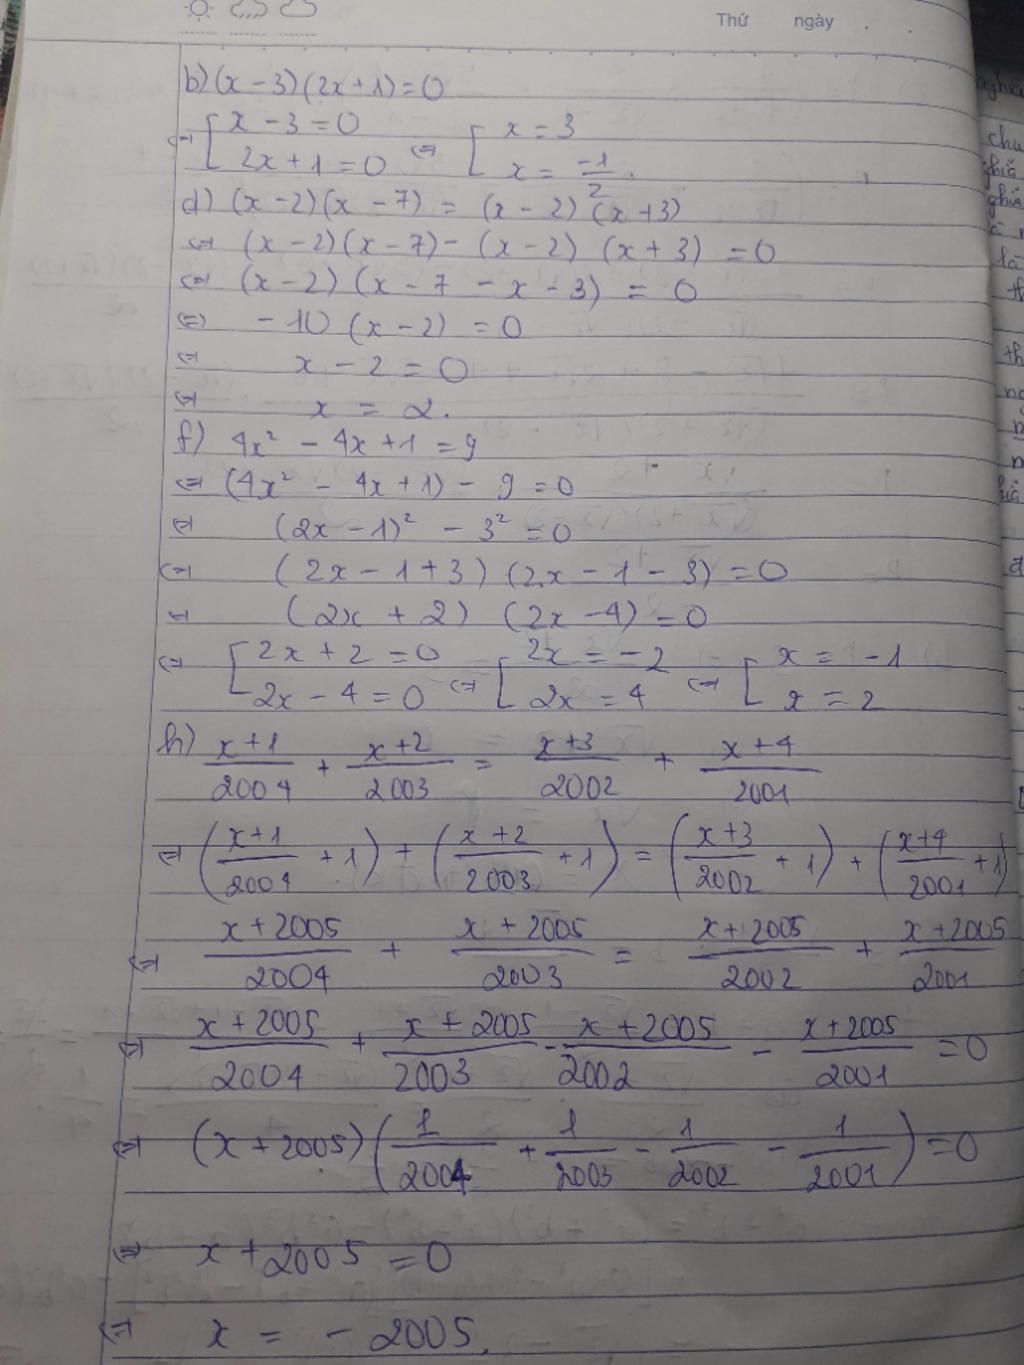 Thứ ngày
b) (x - 3)(2x + 1) = 0
⇔ [ x - 3 = 0 ⇔ [ x = 3
2x + 1 = 0 x = -1/2.
d) (x - 2)(x - 7) = (x - 2)(x + 3)
⇔ (x - 2)(x - 7) - (x - 2)(x + 3) = 0
⇔ (x - 2)(x - 7 - x - 3) = 0
⇔ -10(x - 2) = 0
⇔ x - 2 = 0
⇔ x = 2.
f) 4x² - 4x + 1 = 9
⇔ (4x² - 4x + 1) - 9 = 0
⇔ (2x - 1)² - 3² = 0
⇔ (2x - 1 + 3)(2x - 1 - 3) = 0
⇔ (2x + 2)(2x - 4) = 0
⇔ [ 2x + 2 = 0 ⇔ [ 2x = -2 ⇔ [ x = -1
2x - 4 = 0 2x = 4 x = 2
h) x+1/2004 + x+2/2003 = x+3/2002 + x+4/2001
⇔ (x+1/2004 + 1) + (x+2/2003 + 1) = (x+3/2002 + 1) + (x+4/2001 + 1)
⇔ x+2005/2004 + x+2005/2003 = x+2005/2002 + x+2005/2001
⇔ x+2005/2004 + x+2005/2003 - x+2005/2002 - x+2005/2001 = 0
⇔ (x+2005)(1/2004 + 1/2003 - 1/2002 - 1/2001) = 0
⇔ x + 2005 = 0
⇔ x = -2005.